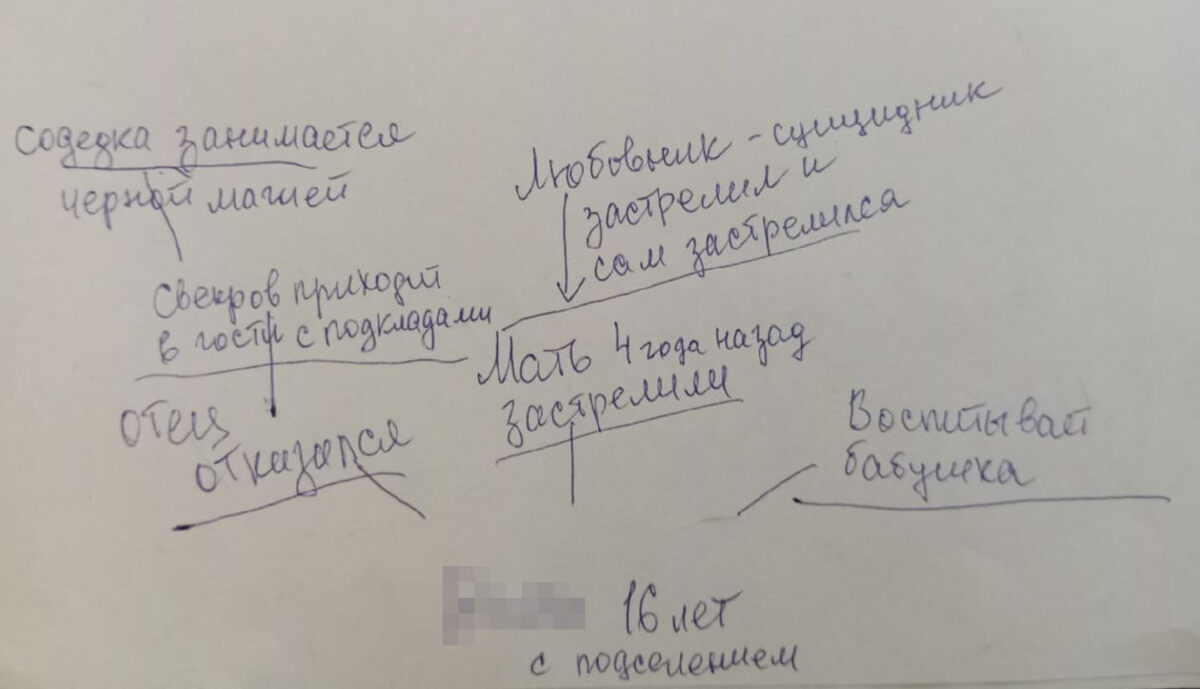 содедка занимается
черной магией
свекров приходит
в гости с подкладами
отец
отказался
Любовник - суицидник
застрелил и
сам застрелился
Мать 4 года назад
застрелили
Воспитывает
бабушка
16 лет
с подселением